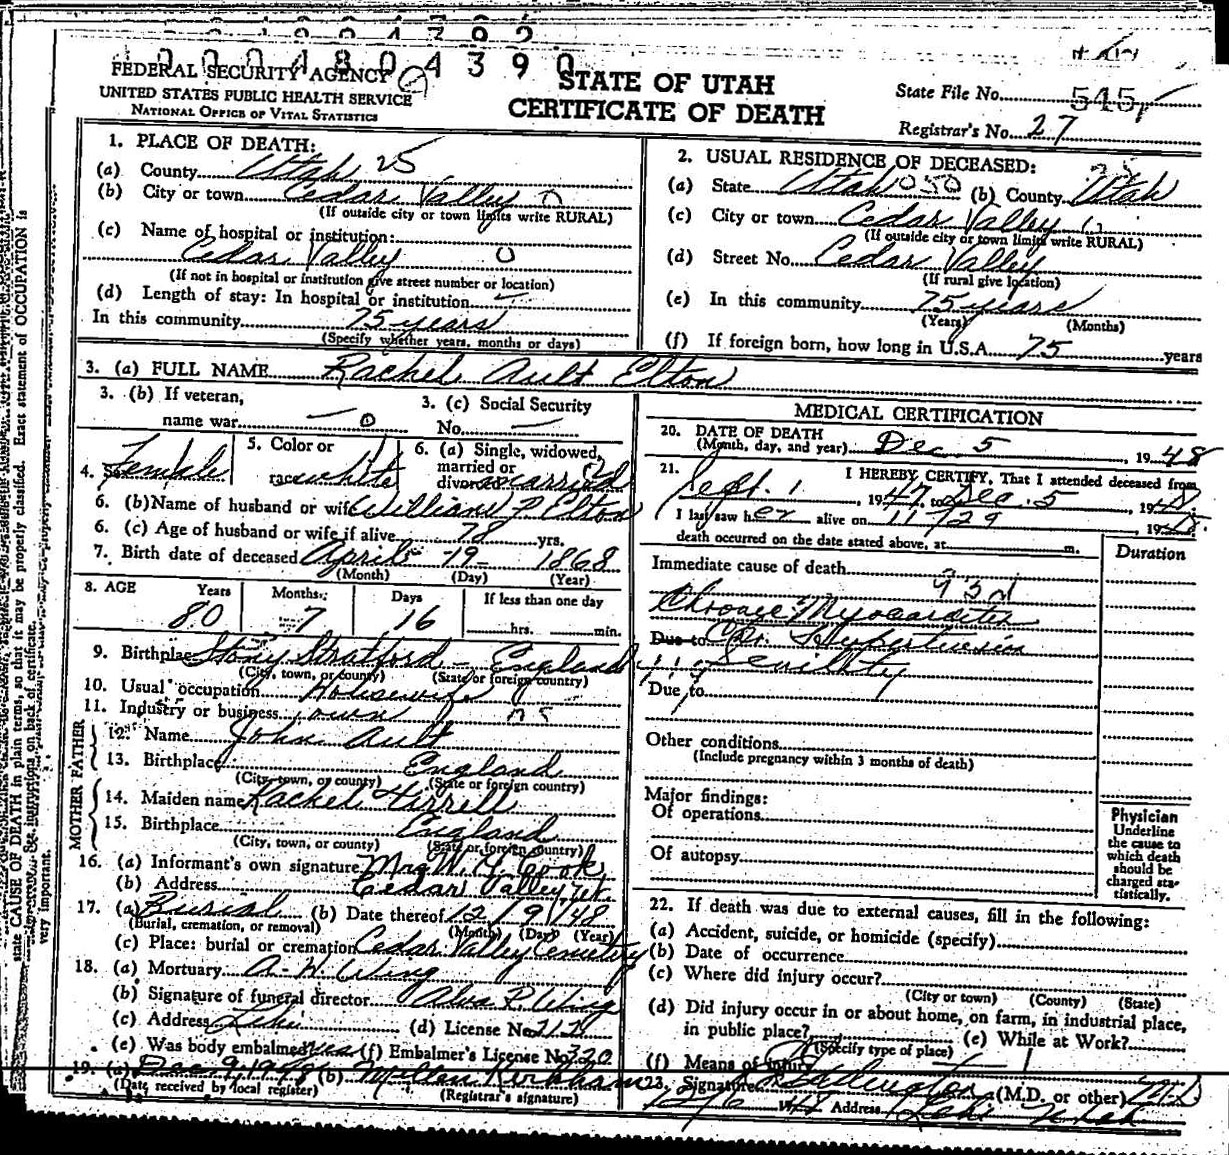 0004804390
FEDERAL SECURITY AGENCY
UNITED STATES PUBLIC HEALTH SERVICE
NATIONAL OFFICE OF VITAL STATISTICS
STATE OF UTAH
CERTIFICATE OF DEATH
State File No. 545
Registrar's No. 27
1. PLACE OF DEATH:
(a) County Utah 25
(b) City or town Cedar Valley 0
(If outside city or town limits write RURAL)
(c) Name of hospital or institution:
Cedar Valley 0
(If not in hospital or institution give street number or location)
(d) Length of stay: In hospital or institution
In this community 75 years
(Specify whether years, months or days)
2. USUAL RESIDENCE OF DECEASED:
(a) State Utah 050 (b) County Utah
(c) City or town Cedar Valley
(If outside city or town limits write RURAL)
(d) Street No. Cedar Valley
(If rural give location)
(e) In this community 75 years
(Years) (Months)
(f) If foreign born, how long in U.S.A. 75 years
3. (a) FULL NAME Rachel Ault Elton
3. (b) If veteran,
name war — 0
3. (c) Social Security
No. —
4. Sex Female
5. Color or
race white
6. (a) Single, widowed,
married or
divorced married
6. (b) Name of husband or wife William P Elton
6. (c) Age of husband or wife if alive 78 yrs.
7. Birth date of deceased April 19 1868
(Month) (Day) (Year)
8. AGE Years Months Days If less than one day
80 7 16 hrs. min.
9. Birthplace Stony Stratford - England
(City, town, or county) (State or foreign country)
10. Usual occupation Housewife
11. Industry or business own
FATHER
12. Name John Ault
13. Birthplace England
(City, town, or county) (State or foreign country)
MOTHER
14. Maiden name Rachel
15. Birthplace England
(City, town, or county) (State or foreign country)
16. (a) Informant's own signature Mrs W. Y. Cook
(b) Address Cedar Valley, Ut.
17. (a) Burial (b) Date thereof 12/9/48
(Burial, cremation, or removal) (Month) (Day) (Year)
(c) Place: burial or cremation Cedar Valley Cemetery
18. (a) Mortuary A. W. Wing
(b) Signature of funeral director Alva P. Wing
(c) Address Lehi (d) License No.
(e) Was body embalmed yes (f) Embalmer's License No. 220
19. (a) Dec 9, 1948 (b) Milton Kirkham
(Date received by local register) (Registrar's signature)
MEDICAL CERTIFICATION
20. DATE OF DEATH
(Month, day, and year) Dec. 5, 1948
21. I HEREBY CERTIFY, That I attended deceased from
Sept. 1, 1947, to Dec. 5, 1948
I last saw her alive on 11/29, 1948.
death occurred on the date stated above, at m.
Duration
Immediate cause of death
93d
Chronic Myocarditis
Due to Hypertension
Senility
Due to
Other conditions
(Include pregnancy within 3 months of death)
Major findings:
Of operations
Of autopsy
Physician
Underline
the cause to
which death
should be
charged sta-
tistically.
22. If death was due to external causes, fill in the following:
(a) Accident, suicide, or homicide (specify)
(b) Date of occurrence
(c) Where did injury occur?
(City or town) (County) (State)
(d) Did injury occur in or about home, on farm, in industrial place,
in public place? (e) While at Work?
(Specify type of place)
(f) Means of injury
23. Signature (M.D. or other) M.D.
Address Lehi Utah
state CAUSE OF DEATH in plain terms, so that it may be properly classified. Exact statement of OCCUPATION is
very important. See instructions on back of certificate.